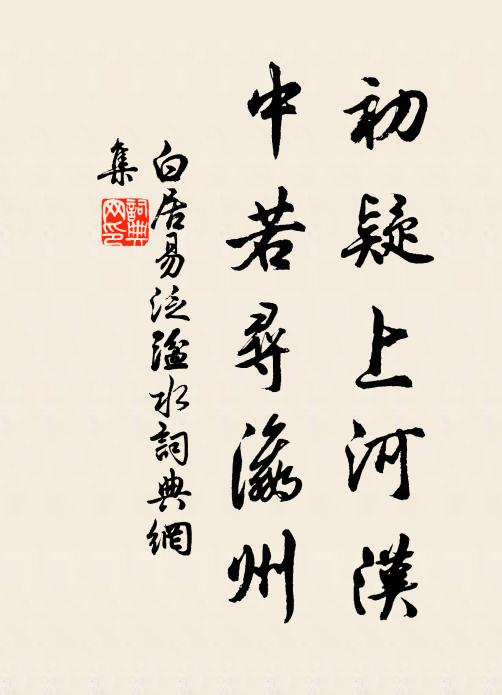 初疑上河漢
中若尋瀛州
白居易泛湓水詞典網
集
詞典
网印